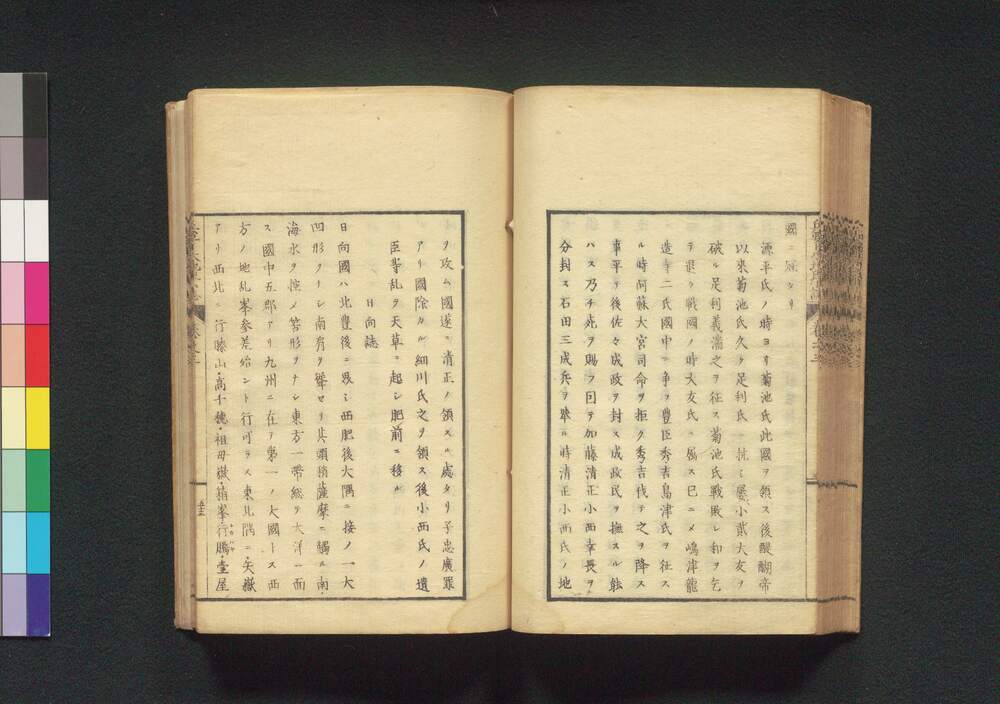 國ニ冠タリ
源平氏ノ時ヨリ菊池氏此國ヲ領ス後醍醐帝
以來菊池氏久ク足利氏ニ抗ミ屡小貳大友ヲ
破ル足利義滿之ヲ征ス菊池氏戰敗レ和ヲ乞
テ退ク戰國ノ時大友氏ニ屬ス已ニメ嶋津龍
造寺二氏國中ニ争フ豊臣秀吉島津氏ヲ征ス
ル時阿蘇大宮司命ヲ拒ク秀吉伐テ之ヲ降ス
事平テ後佐々成政ヲ封ス成政民ヲ撫スル能
ハス乃チ死ヲ賜フ因テ加藤清正小西幸長ヲ
分封ス石田三成兵ヲ擧ル時清正小西氏ノ地
ヲ攻ム國遂ニ清正ノ領スル處タリ子忠廣罪
アリ國除カル細川氏之ヲ領ス後小西氏ノ遺
臣等乱ヲ天草ニ起シ肥前ニ移ル
日向誌
日向國ハ北豊後ニ界シ西肥後大隅ニ接ノ一大
凹形ヲナシ南肩ヲ聳セリ其頭稍薩摩ニ觸ル南
海水ヲ控メ箕形ヲナシ東方一帶総テ大洋ニ面
ス國中五郡アリ九州ニ在テ第一ノ大國トス西
方ノ地乱峯參差殆ント行可ラス東北隅ニ矢嶽
アリ西北ニ行縢山・高千穗・祖母嶽・稍峯・行騰・堂屋
卷之三
五三